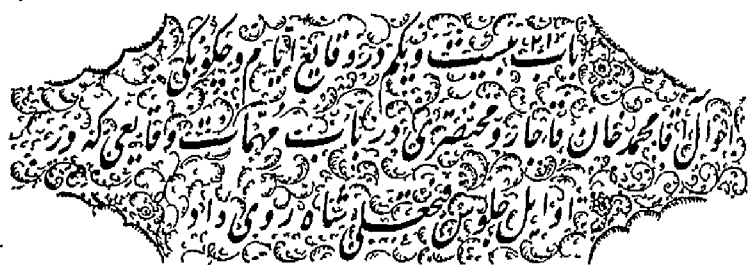 باب بیست و یکم در وقایع ایام و چگونگی
احوال آقا محمد خان قاجار و مختصری در باب مهمات وقایعی که در
اوایل جلوس فتحعلی شاه روی داد